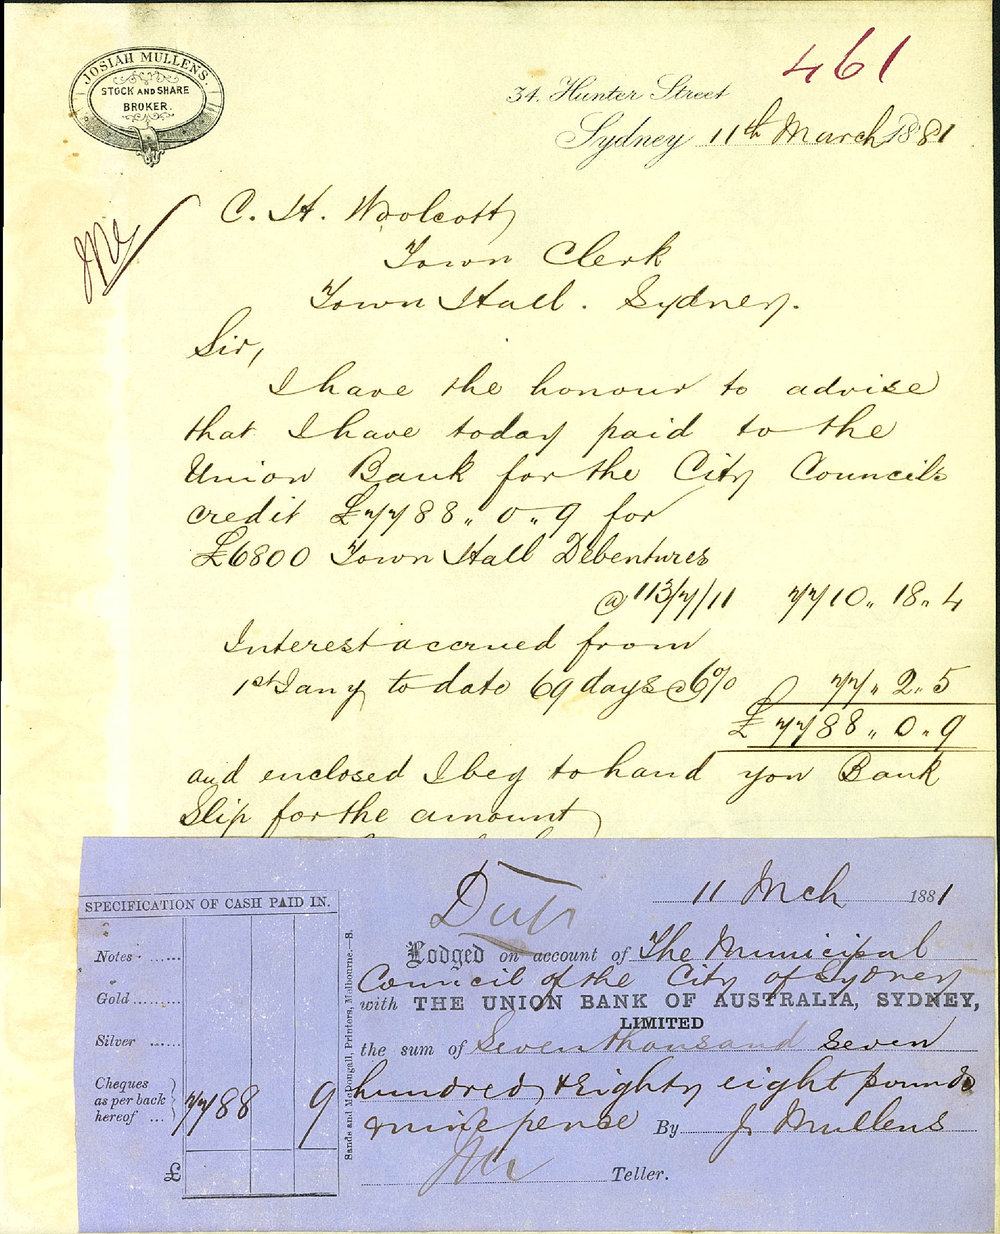 461
JOSIAH MULLENS.
STOCK AND SHARE
BROKER.
34. Hunter Street
Sydney 11th March 1881
C. H. Woolcott
Town Clerk
Town Hall. Sydney.
Sir,
I have the honour to advise
that I have today paid to the
Union Bank for the City Council's
credit £7788 " 0 " 9 for
£6800 Town Hall Debentures
@ 113/7/11 7710 " 18 " 4
Interest accrued from
1st Jany to date 69 days @ 6% 77 " 2 " 5
£ 7788 " 0 " 9
and enclosed I beg to hand you Bank
Slip for the amount
Dup
11 Mch 1881
SPECIFICATION OF CASH PAID IN.
Notes
Gold
Silver
Cheques
as per back
hereof 7788 9
£
Sands and McDougall, Printers, Melbourne.—S.
Lodged on account of The Municipal
Council of the City of Sydney
with THE UNION BANK OF AUSTRALIA, SYDNEY,
LIMITED
the sum of Seven thousand seven
hundred & Eighty eight pounds
nine pence By J. Mullens
Teller.